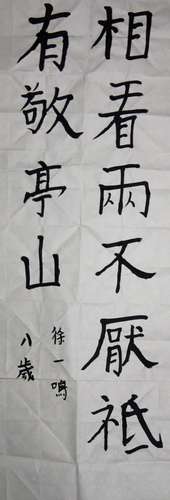 相看兩不厭祗
有敬亭山
徐一鳴
八歲